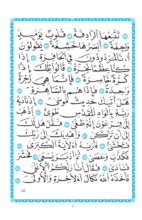 تَتْبَعُهَا ٱلرَّادِفَةُ ۝ قُلُوبٌ يَوْمَئِذٍ
وَاجِفَةٌ ۝ أَبْصَٰرُهَا خَٰشِعَةٌ ۝ يَقُولُونَ
أَءِنَّا لَمَرْدُودُونَ فِى ٱلْحَافِرَةِ ۝ أَءِذَا
كُنَّا عِظَٰمًا نَّخِرَةً ۝ قَالُوا۟ تِلْكَ إِذًا
كَرَّةٌ خَاسِرَةٌ ۝ فَإِنَّمَا هِىَ زَجْرَةٌ
وَٰحِدَةٌ ۝ فَإِذَا هُم بِٱلسَّاهِرَةِ ۝
هَلْ أَتَىٰكَ حَدِيثُ مُوسَىٰٓ ۝ إِذْ نَادَىٰهُ
رَبُّهُۥ بِٱلْوَادِ ٱلْمُقَدَّسِ طُوًى ۝ ٱذْهَبْ
إِلَىٰ فِرْعَوْنَ إِنَّهُۥ طَغَىٰ ۝ فَقُلْ هَل لَّكَ
إِلَىٰٓ أَن تَزَكَّىٰ ۝ وَأَهْدِيَكَ إِلَىٰ رَبِّكَ
فَتَخْشَىٰ ۝ فَأَرَىٰهُ ٱلْءَايَةَ ٱلْكُبْرَىٰ ۝
فَكَذَّبَ وَعَصَىٰ ۝ ثُمَّ أَدْبَرَ يَسْعَىٰ ۝ فَحَشَرَ
فَنَادَىٰ ۝ فَقَالَ أَنَا۠ رَبُّكُمُ ٱلْأَعْلَىٰ ۝
فَأَخَذَهُ ٱللَّهُ نَكَالَ ٱلْءَاخِرَةِ وَٱلْأُولَىٰٓ ۝